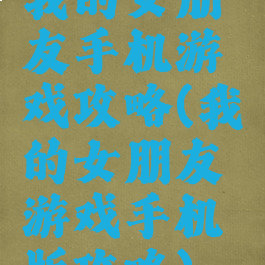 我的女朋
友手机游
戏攻略(我
的女朋友
游戏手机
版攻略)